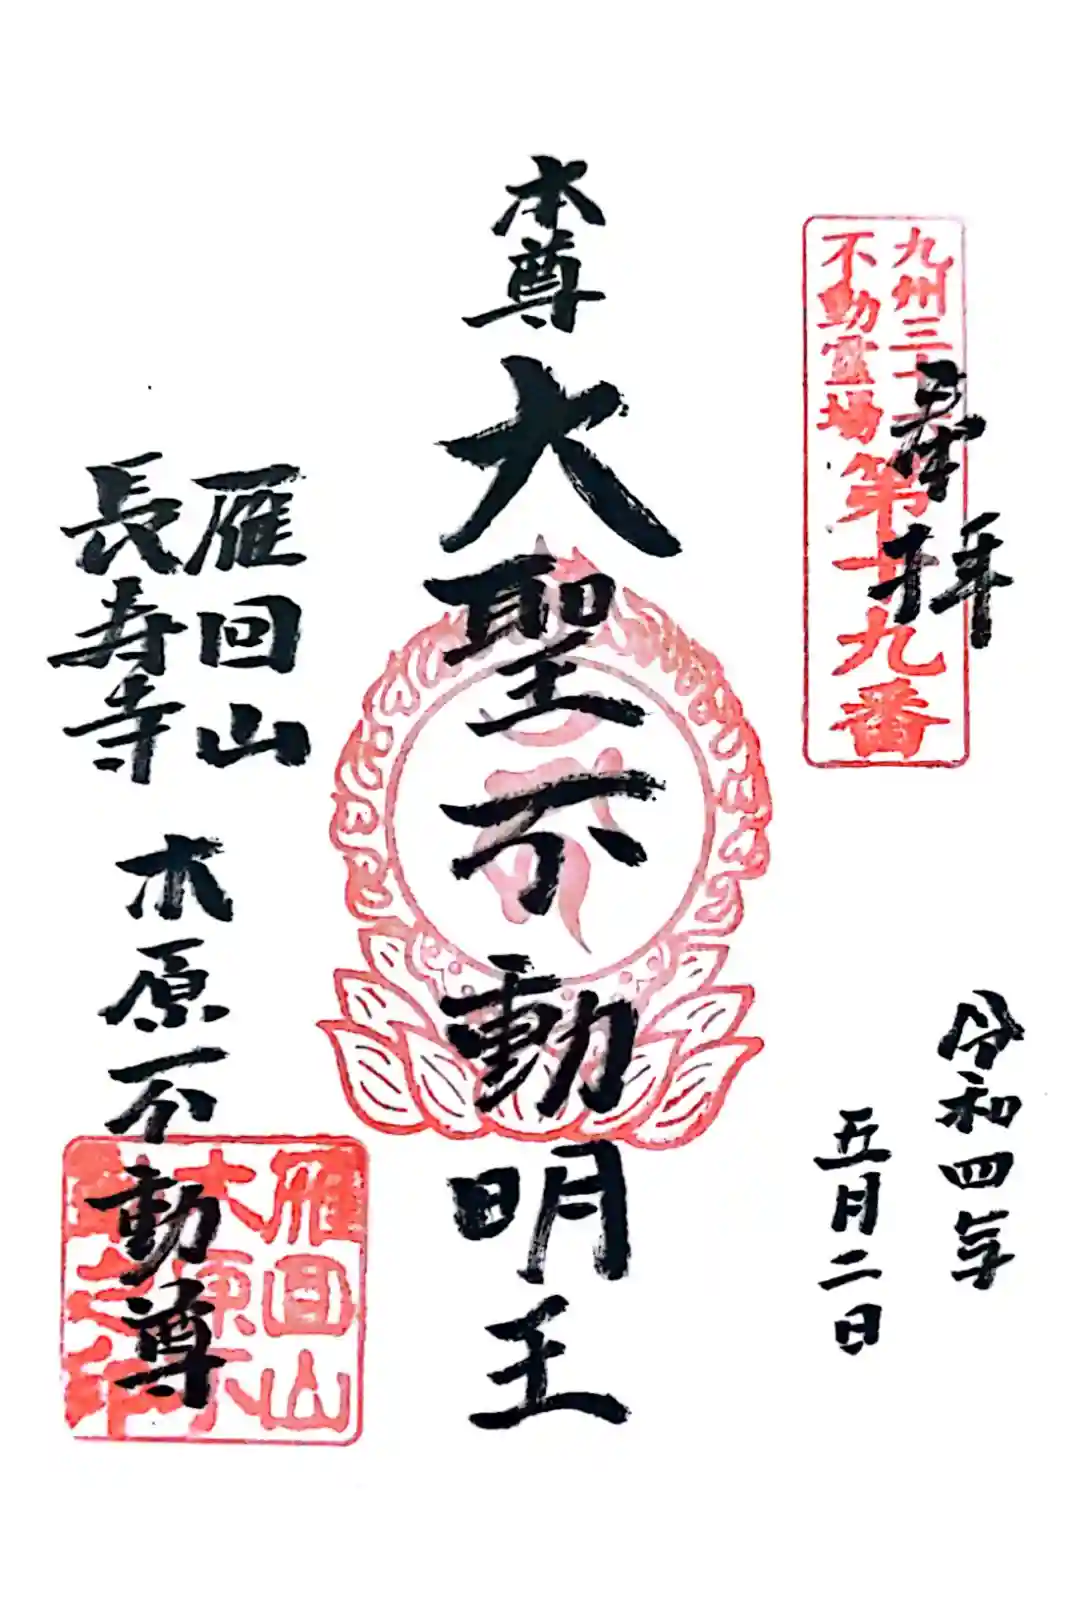 九州三十
不動霊場
第十九番
奉拝
令和四年
五月二日
本尊
大聖不動明王
雁回山
長寿寺
木原不動尊
雁回山
木原不
之印